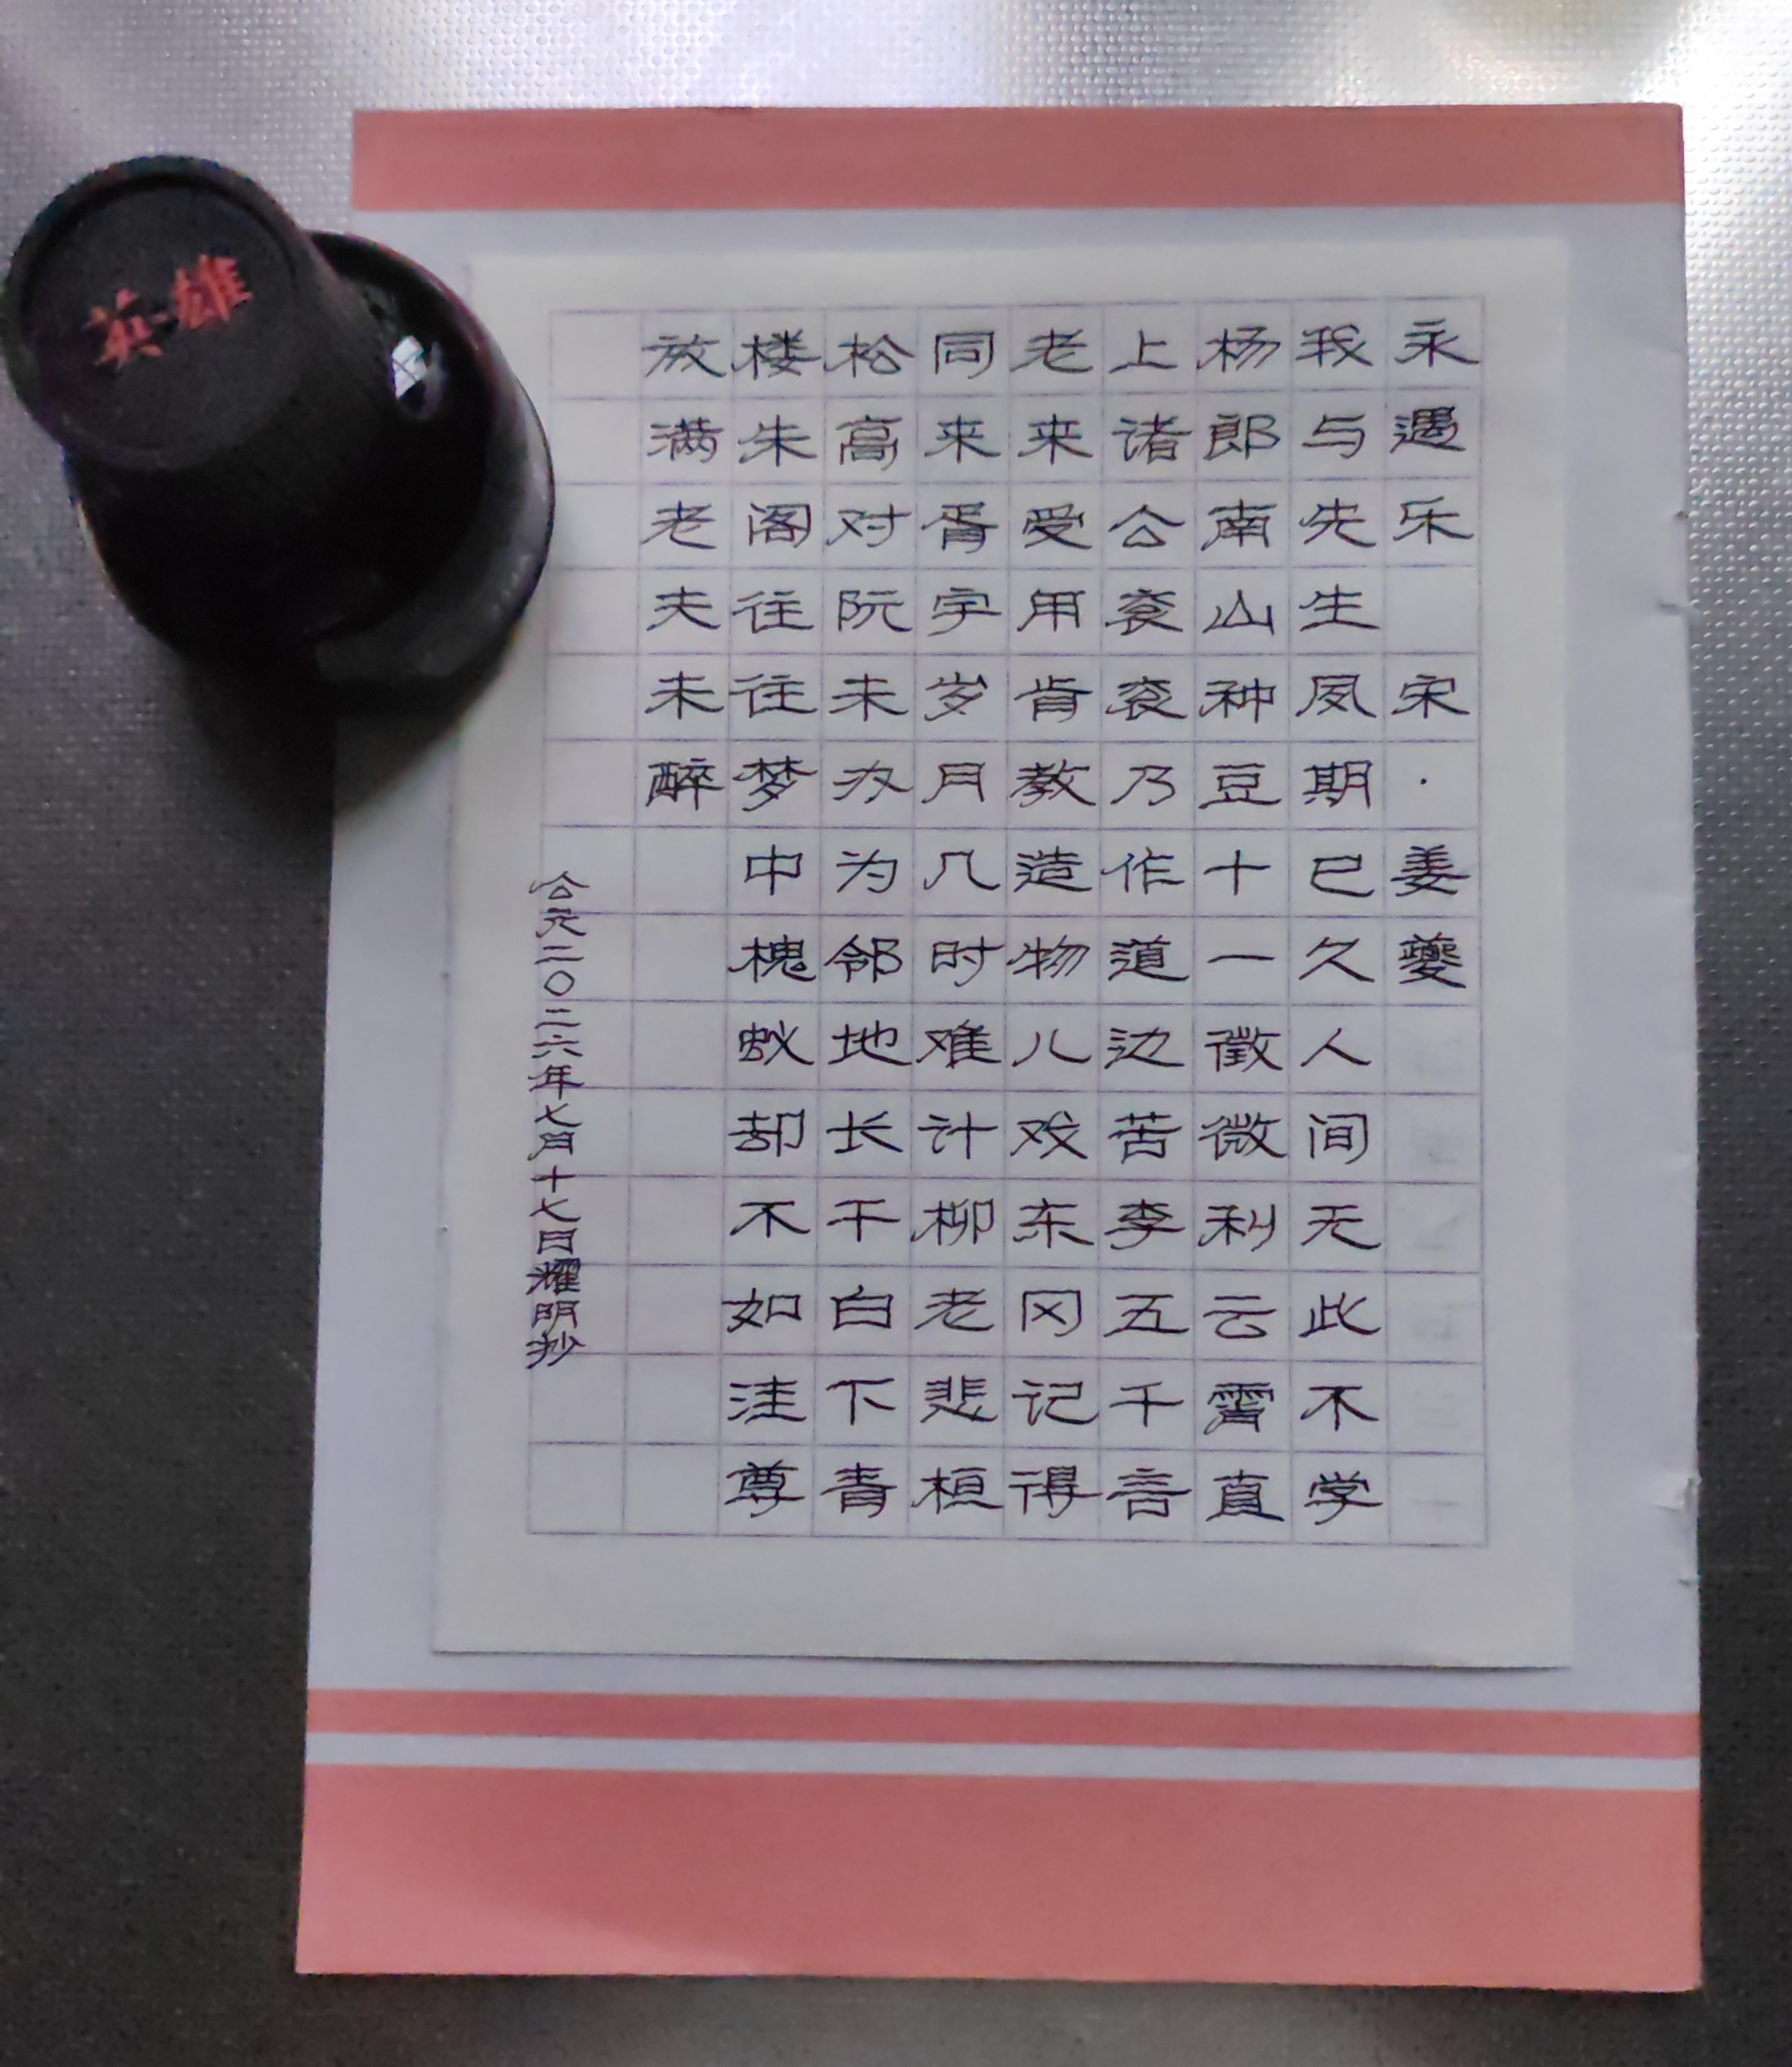 永遇乐 宋·姜夔
我与先生夙期已久人间无此不学
杨郎南山种豆十一徵微利云霄直
上诸公衮衮乃作道边苦李五千言
老来受用肯教造物儿戏东冈记得
同来胥宇岁月几时难计柳老悲桓
松高对阮未办为邻地长干白下青
楼朱阁往往梦中槐蚁却不如洼尊
放满老夫未醉
公元二〇二六年七月十七日耀明抄
英雄